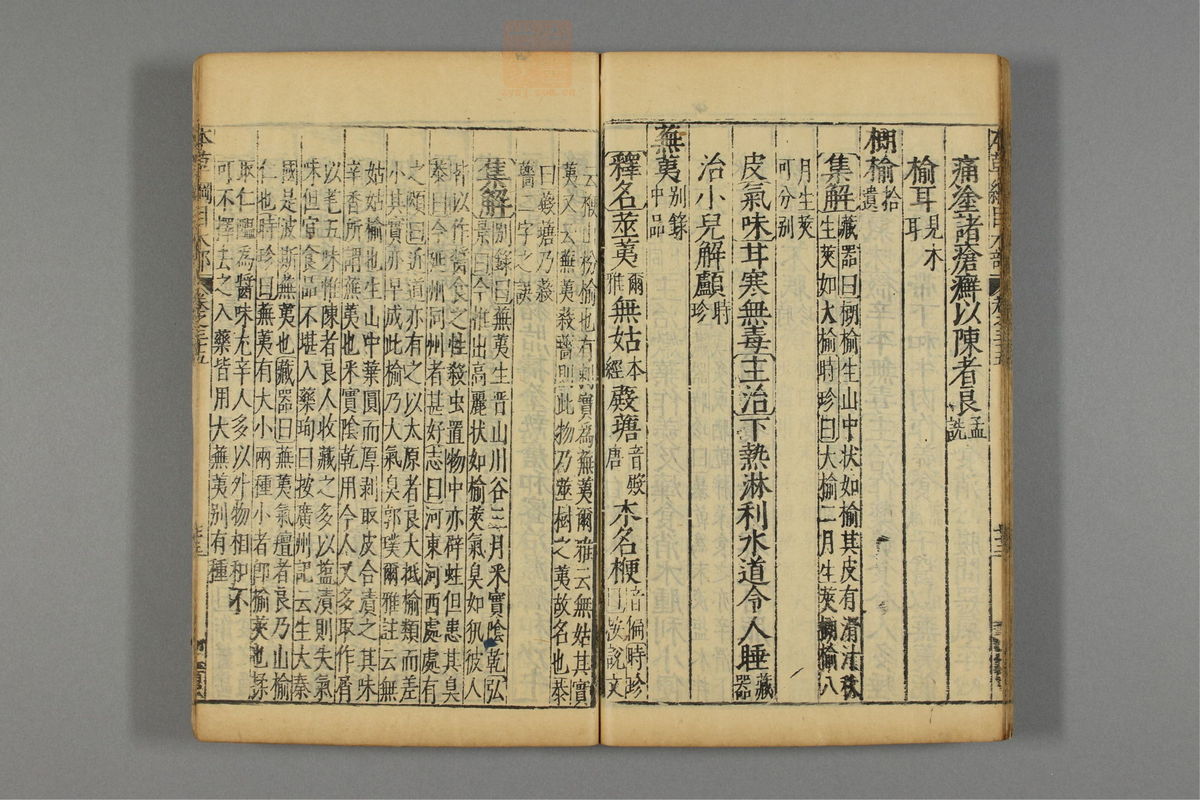 痛塗諸瘡癬以陳者良孟詵
榆耳見木耳
榔榆拾遺
集解藏器曰榔榆生山中状如榆其皮有滑汁秋
生莢如大榆時珍曰大榆二月生莢榔榆八
月生莢可分别
皮氣味甘寒無毒主治下熱淋利水道令人睡藏器
治小兒解顱時珍
蕪荑别錄中品
釋名莁荑爾雅無姑本經㱾䕋音殿唐木名梗音偏時珍曰按説文
云梗山枌榆也有刺實爲蕪荑爾雅云無姑其實
荑又云蕪荑㱾醬則此物乃莁樹之荑故名也恭
曰㱾䕋乃㱾
醬二字之誤
集解别錄曰蕪荑生晋山川谷三月采實陰乾弘
景曰今惟出高麗状如榆莢氣臭如犼彼人
皆以作醬食之性殺虫置物中亦辟蛀但患其臭
恭曰今延州同州者甚好志曰河東河西處處有
之頌曰近道亦有之以太原者良大抵榆類而差
小其實亦早成此榆乃大氣臭郭璞爾雅註云無
姑姑榆也生山中葉圓而厚剥取皮合漬之其味
辛香所謂蕪荑也采實陰乾用今人又多取作屑
以芼五味惟陳者良人收藏之多以鹽漬則失氣
味但宜食品不堪入藥珣曰按廣州記云生大秦
國是波斯蕪荑也藏器曰蕪荑氣羶者良乃山榆
仁也時珍曰蕪荑有大小兩種小者即榆莢也揉
取仁醖爲醬味尤辛人多以外物相和不
可不擇去之入藥皆用大蕪荑别有種
本草綱目木部
卷之三十五